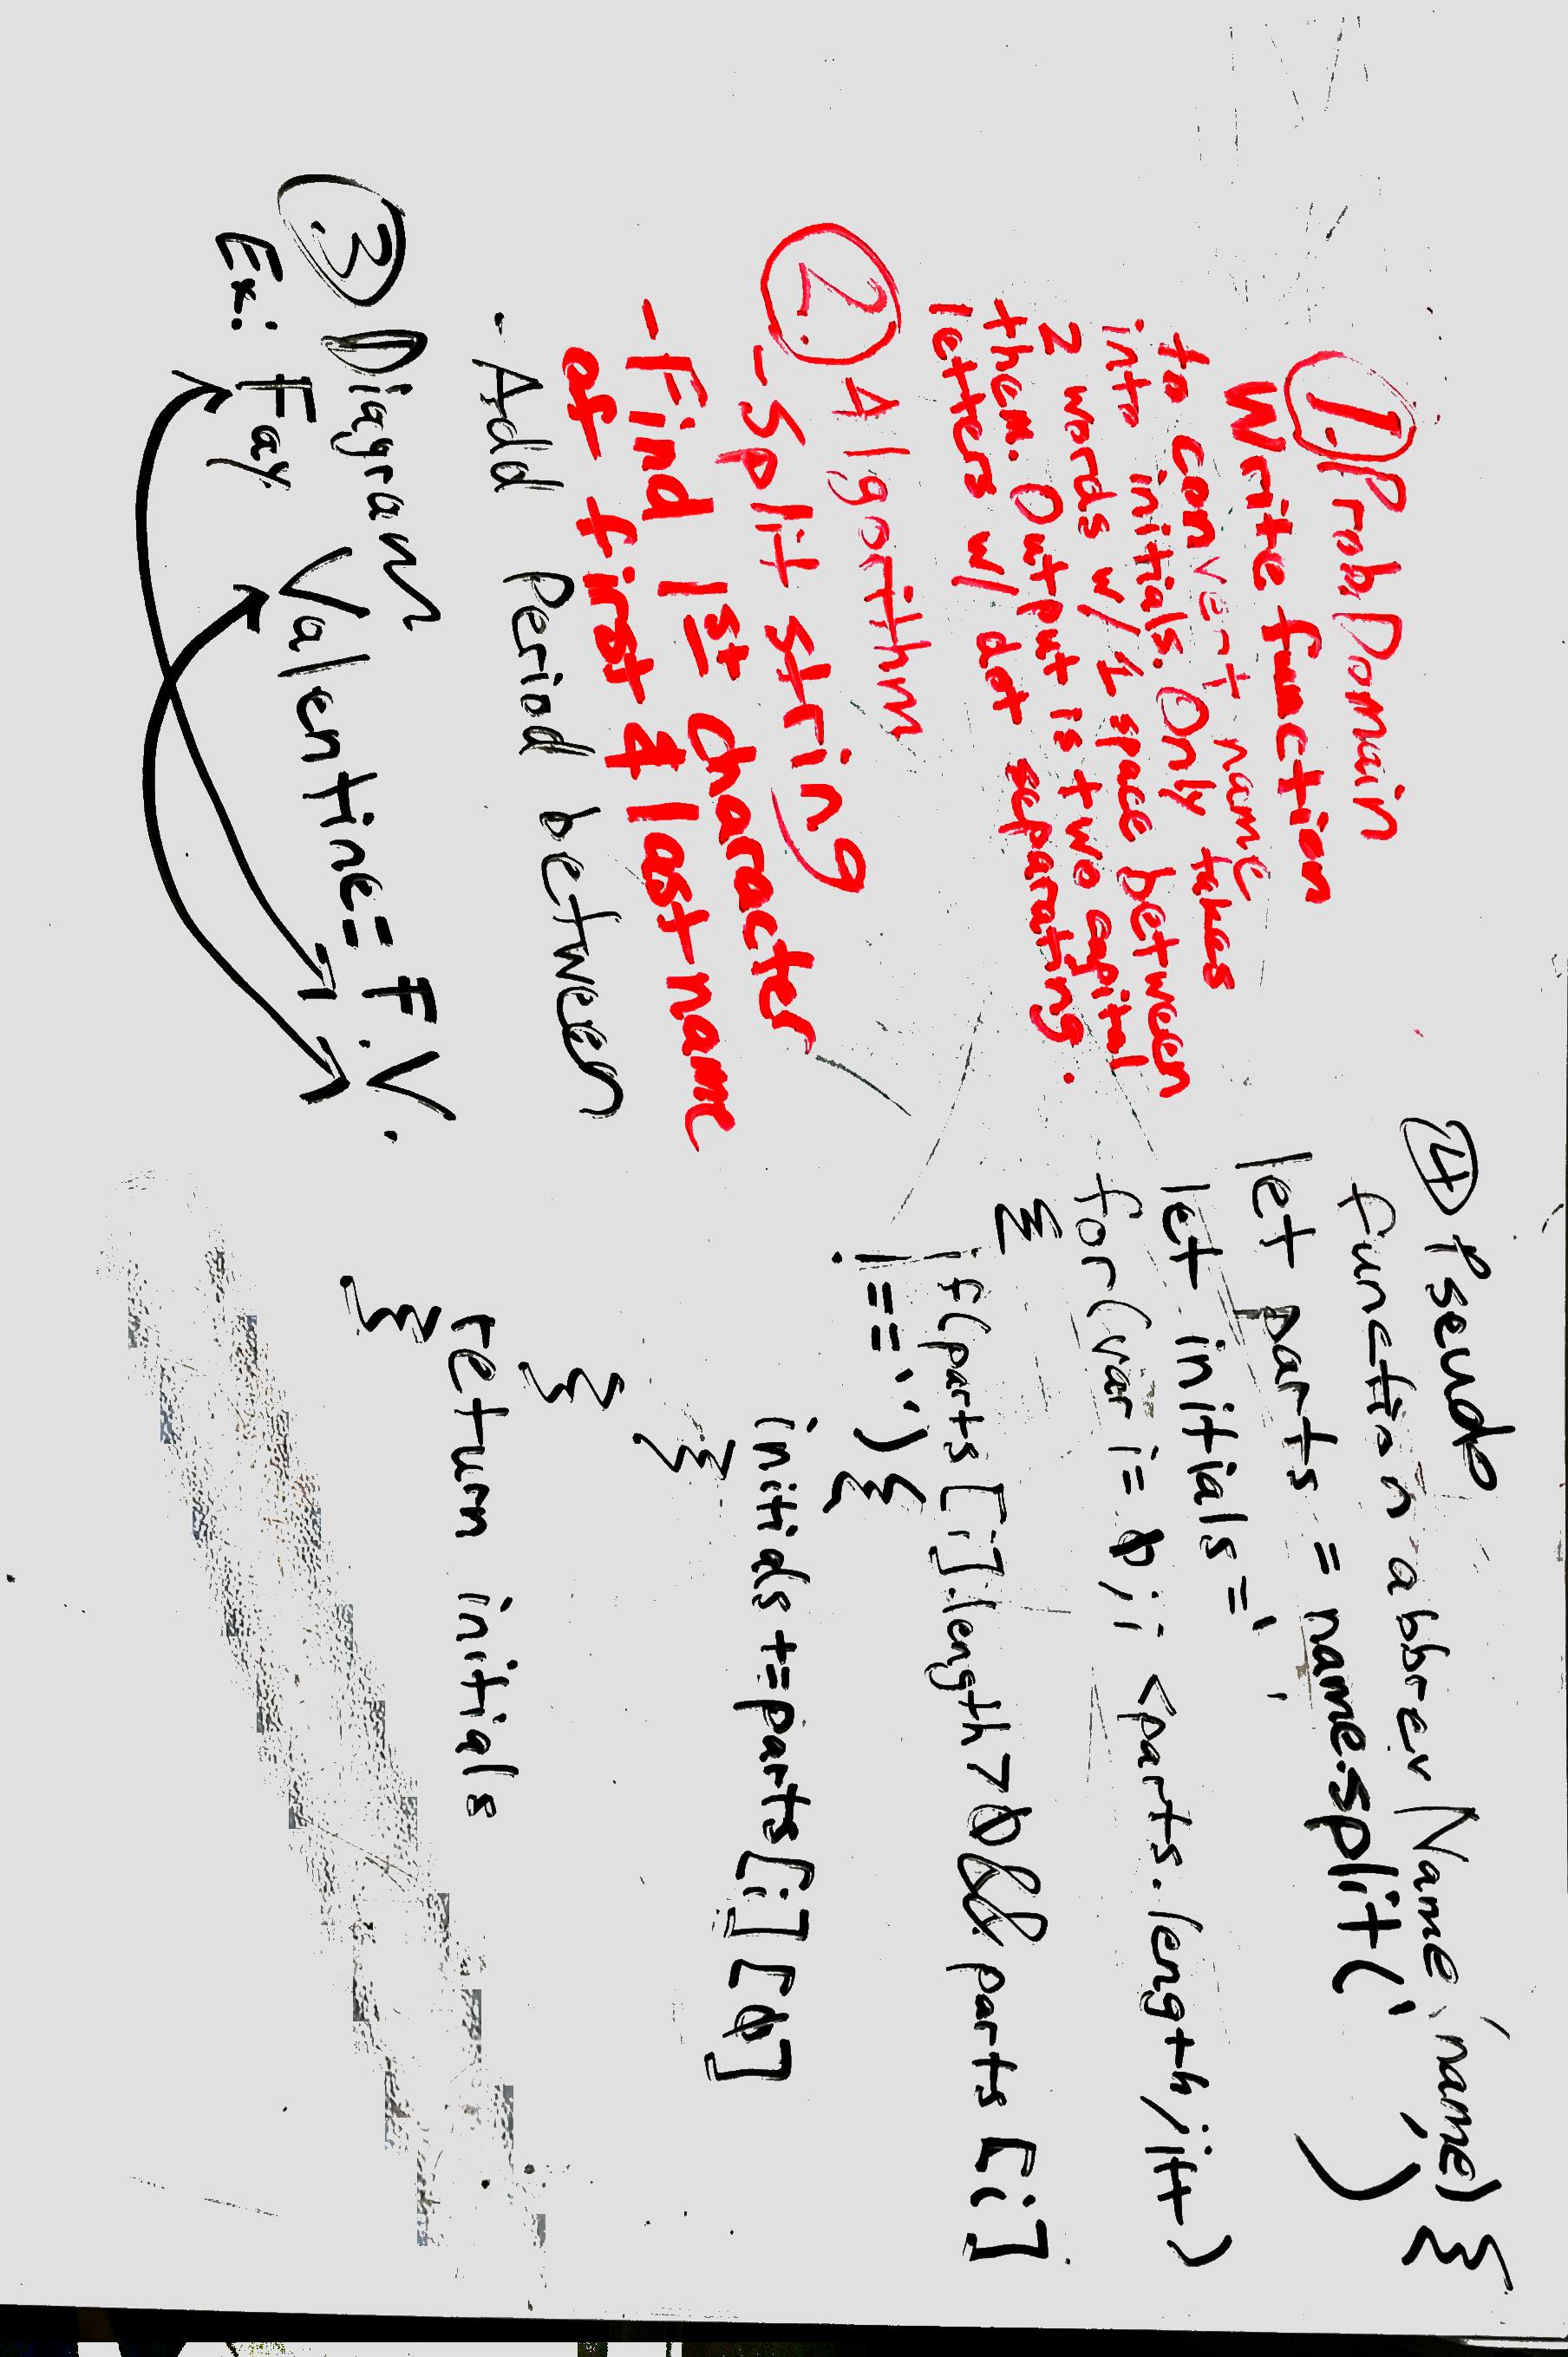 1. Prob Domain
Write function
to convert name
into initials. Only takes
2 words w/ 1 space between
them. Output is two capital
letters w/ dot separating.
2. Algorithm
- Split string
- Find 1st character
of first & last name
- Add Period between
3. Diagram
Ex: Fay Valentine = F.V.
4 Pseudo
function abbrevName(name) {
let parts = name.split(' ')
let initials = ' '
for (var i = 0; i < parts.length; i++)
{
if (parts[i].length > 0 && parts[i]
!== '') {
initials += parts[i][0]
}
}
return initials
}